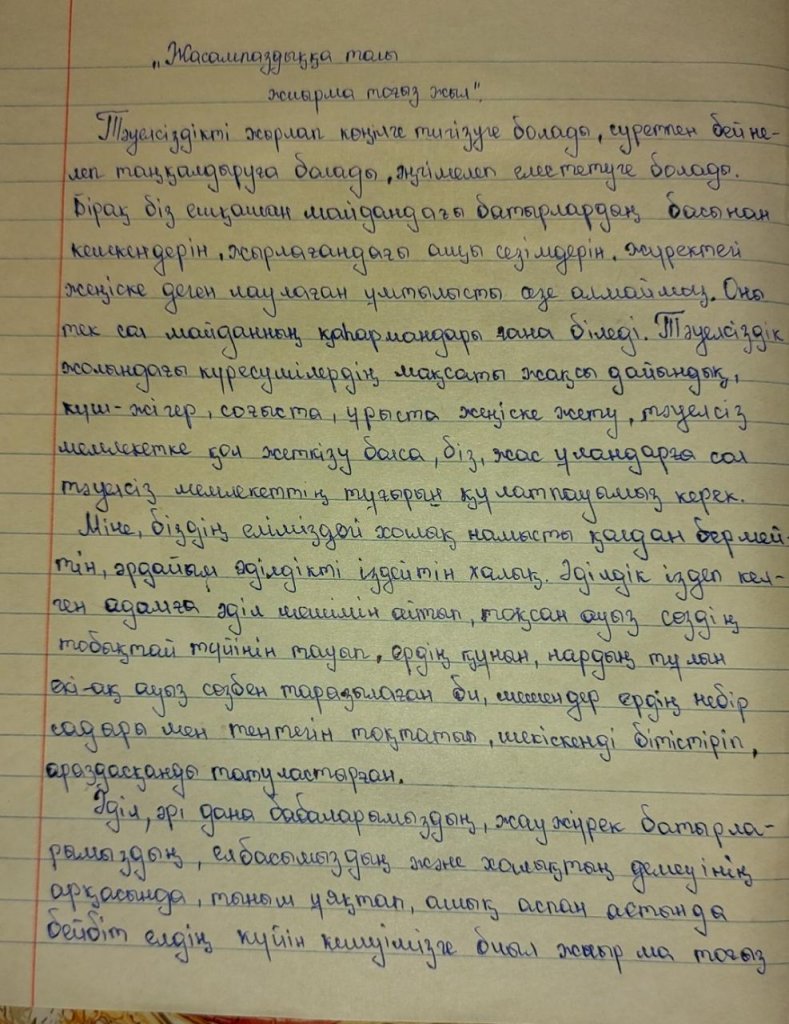 „Жасампаздыққа толы
жиырма тоғыз жыл".
Тәуелсіздікті жырлап көңілге тигізуге болады, суретпен бейне-
леп таңқалдыруға болады, әңгімелеп елестетуге болады.
Бірақ біз ешқашан майдандағы батырлардың басынан
кешкендерін, жырлағандағы ащы сезімдерін, жүректегі
жеңіске деген лаулаған ұмтылысты сезе алмаймыз. Оны
тек сол майданның қаһармандары ғана біледі. Тәуелсіздік
жолындағы күресушілердің мақсаты жақсы дайындық,
күш-жігер, соғыста, ұрыста жеңіске жету, тәуелсіз
мемлекетке қол жеткізу болса, біз, жас ұландарға сол
тәуелсіз мемлекеттің тұғырын құлатпауымыз керек.
Міне, біздің еліміздей халық намысты қолдан бермей-
тін, әрдайым әділдікті іздейтін халық. Әділдік іздеп кел-
ген адамға әділ шешімін айтып, тоқсан ауыз сөздің
тобықтай түйінін тауып, ердің құнын, нардың пұлын
екі-ақ ауыз сөзбен таразылаған би, шешендер ердің небір
содыры мен тентегін тоқтатып, шекіскенді бітістіріп,
араздасқанды татуластырған.
Әділ, әрі дана бабаларымыздың, жаужүрек батырла-
рымыздың, елбасымыздың және халықтың демеуінің
арқасында, тыным ұяқтап, ашық аспан астында
бейбіт елдің күйін кешуімізге биыл жиырма тоғыз